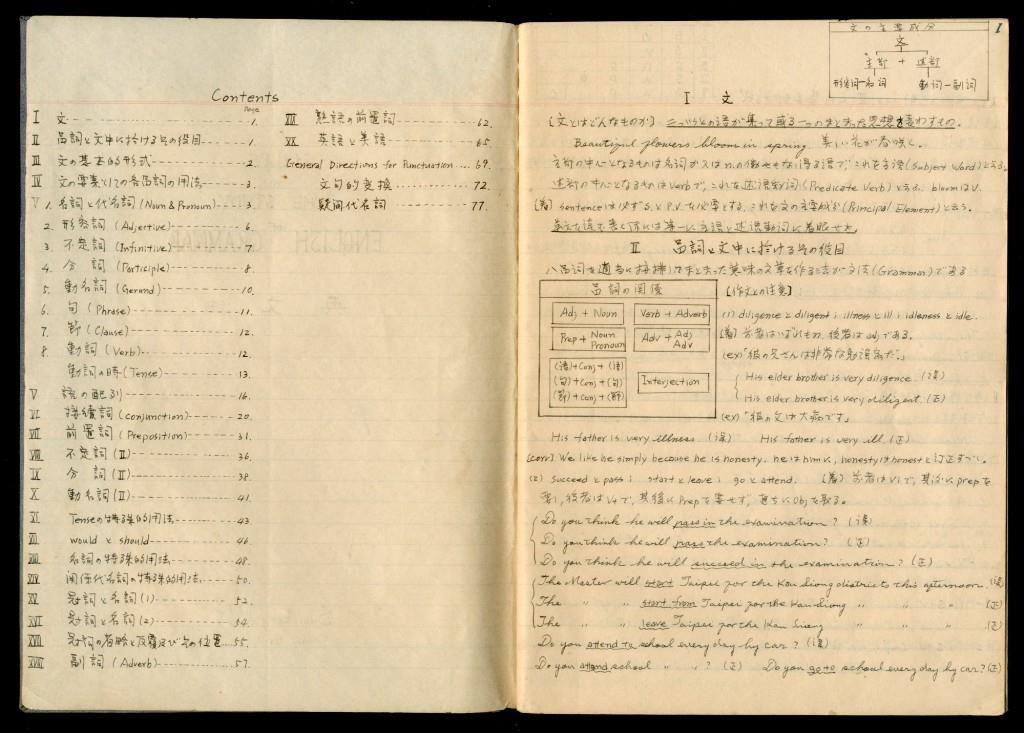 Contents
Page
I 文 1.
II 品詞と文中に於ける其の役目 1.
III 文の基本的形式 2.
IV 文の要素としての各品詞の用法 3.
V 1. 名詞と代名詞 (Noun & Pronoun) 3.
2. 形容詞 (Adjective) 6.
3. 不定詞 (Infinitive) 7.
4. 分詞 (Participle) 8.
5. 動名詞 (Gerund) 10.
6. 句 (Phrase) 11.
7. 節 (Clause) 12.
8. 動詞 (Verb) 12.
動詞の時 (Tense) 13.
V 語の配列 16.
VI 接続詞 (Conjunction) 20.
VII 前置詞 (Preposition) 31.
VIII 不定詞 (II) 36.
IX 分詞 (II) 38.
X 動名詞 (II) 41.
XI Tenseの特殊的用法 43.
XII would と should 46.
XIII 名詞の特殊的用法 48.
XIV 関係代名詞の特殊的用法 50.
XV 冠詞と名詞 (1) 52.
XVI 冠詞と名詞 (2) 54.
XVII 冠詞の省略と反覆及びその位置 55.
XVIII 副詞 (Adverb) 57.
熟語の前置詞 62.
XX 英語と美語 65.
General Directions for Punctuation 69.
文句的変換 72.
疑问代名詞 77.
1
文の主要成分
文
主部 + 述部
形容詞—名詞 動詞—副詞
I 文
(文とはどんなものか) 二つ以上の語が集って或る一つのまとまった思想を表わすもの。
Beautiful flowers bloom in spring. 美しい花が春咲く。
主部の中心となるものは名詞か又は n.の働きをなし得る語で、これを主語 (Subject Word) と云う。
述部の中心となるものは verb で、これを述語動詞 (Predicate Verb) と云う。bloomはV.
sentenceは必ず S. と P.V. を必要とする。これを文の主要成分 (Principal Element) と云う。
II 品詞と文中に於けるその役目
八品詞を適当に接排してまとまった意味の文章を作る法が文法 (Grammar) である
品詞の関係
Adj + Noun
Verb + Adverb
Prep + Noun Pronoun
Adv + Adj Adv
(語)+Conj+(語)
(句)+Conj+(句)
(節)+Conj+(節)
Interjection
[作文上の注意]
(1) diligence と diligent; illness と ill; idleness と idle.
前者はいずれもn, 後者は adj である。
(ex)「彼の兄さんは非常な勉強家だ。」
His elder brother is very diligence. (誤)
His elder brother is very diligent. (正)
(ex)「彼の父は大病です」
His father is very illness. (誤) His father is very ill. (正)
[corr] We like he simply because he is honesty. he は him に, honesty は honest と訂正すべし。
(2) succeed と pass; start と leave; go と attend. 前者は Vi で, 其次に prep を
要し, 後者は Vt で, 其後に Prep を要せず, 直ちに Obj を取る。
Do you think he will pass in the examination? (誤)
Do you think he will pass the examination? (正)
Do you think he will succeed in the examination? (正)
The Master will start Taipei for the Kan Siong districts this afternoon (誤)
The 〃 〃 start from Taipei for the Kan Siong 〃 〃 〃 (正)
The 〃 〃 leave Taipei for the Kan Siong 〃 〃 〃 (正)
Do you attend to school every day by car? (誤)
Do you attend school 〃 〃 ? (正) Do you go to school every day by car? (正)